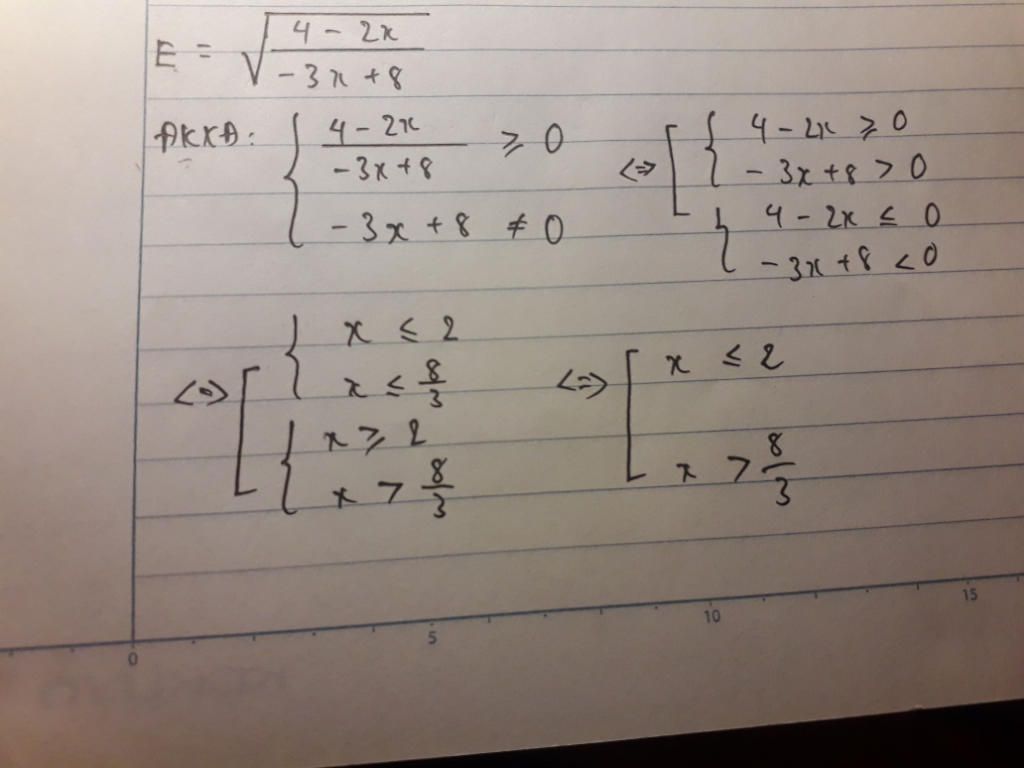 E = √((4 - 2x)/(-3x + 8))
ĐKXĐ: { (4 - 2x)/(-3x + 8) ≥ 0
-3x + 8 ≠ 0
<=> [ { 4 - 2x ≥ 0
-3x + 8 > 0
{ 4 - 2x ≤ 0
-3x + 8 < 0
<=> [ { x ≤ 2
x ≤ 8/3
{ x ≥ 2
x > 8/3
<=> [ x ≤ 2
x > 8/3
0 5 10 15